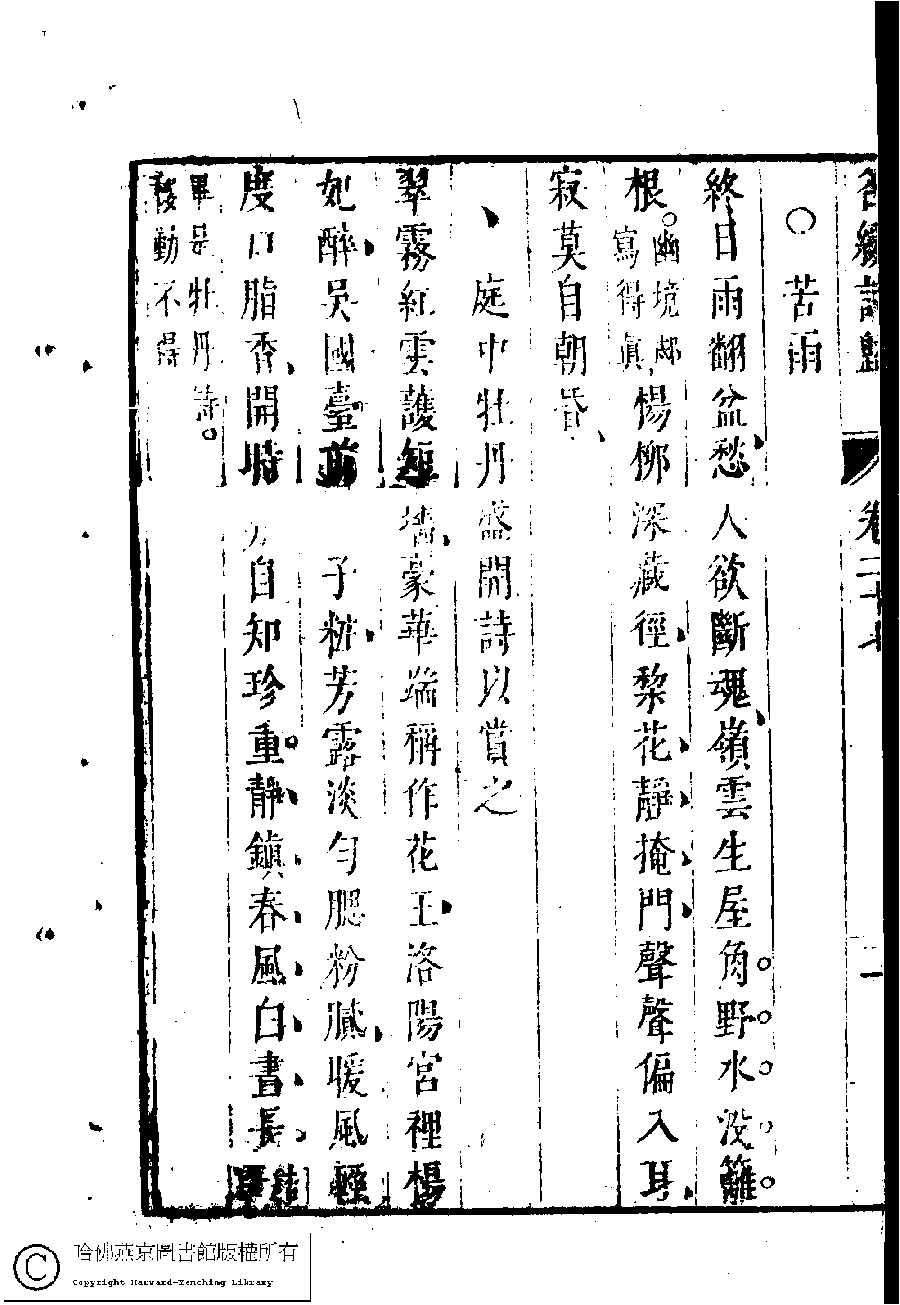 名媛詩歸　卷二十七　一
○苦雨
終日雨翻盆愁人欲斷魂嶺雲生屋角野水没籬
根幽境却寫得真楊柳深藏徑黎花靜掩門聲聲偏入耳
寂莫自朝昏
庭中牡丹盛開詩以賞之
翠霧紅雲護短墻豪華端稱作花王洛陽宮裡楊
妃醉吳國臺前子粧芳露淡勻腮粉膩暖風輕
度口脂香開時自知珍重靜鎮春風白晝長結
單是牡丹詩
移動不得
哈佛燕京圖書館版權所有
Copyright Harvard-Yenching Library